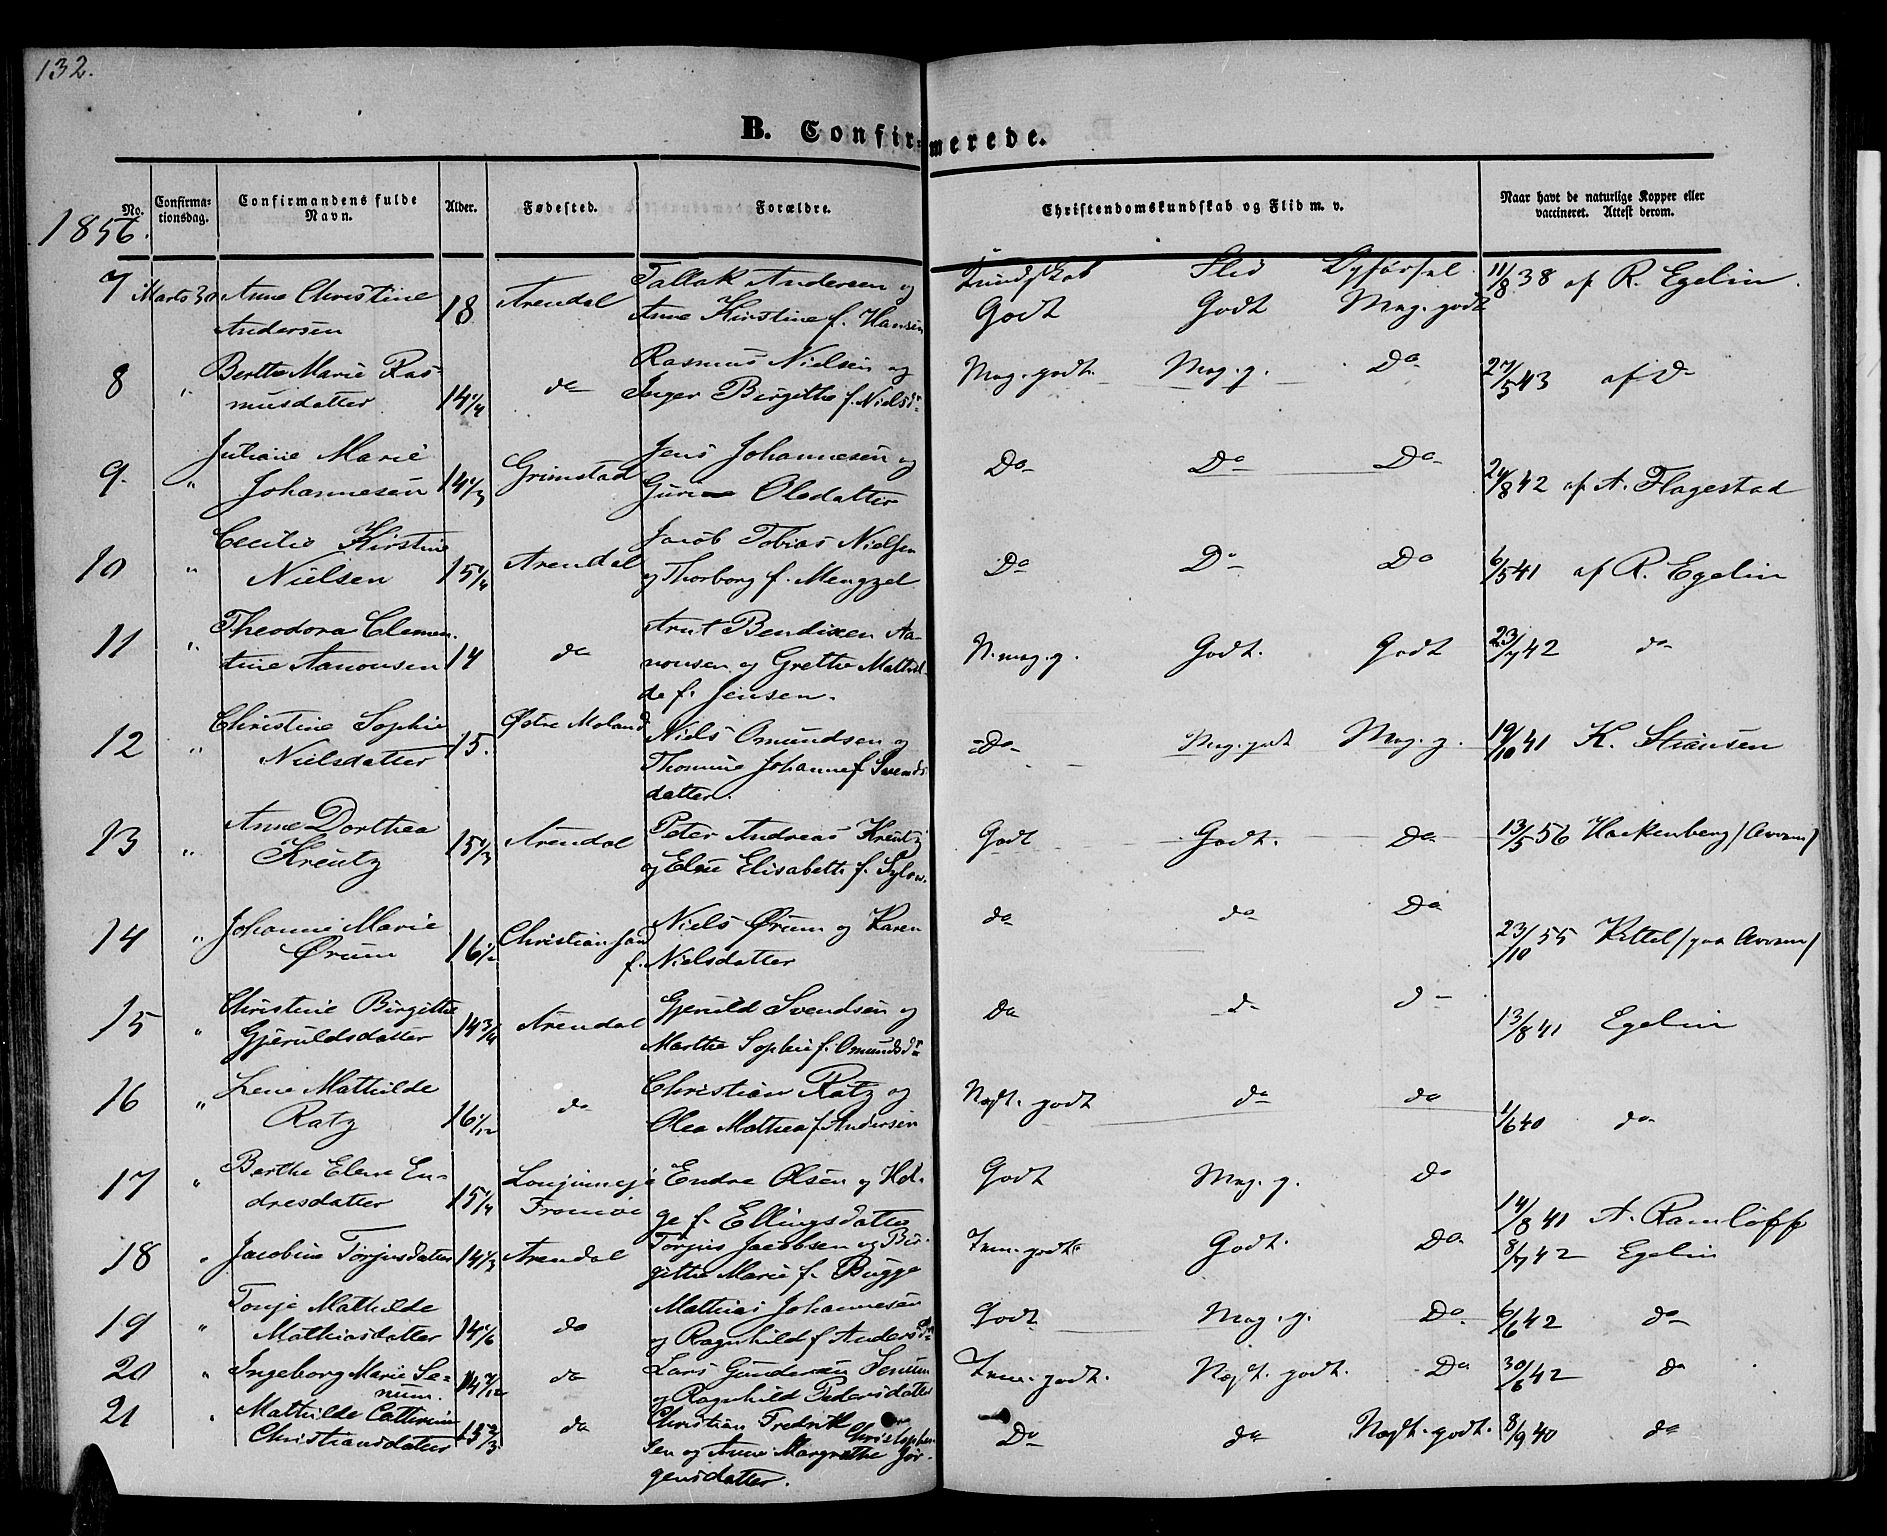 132.
B. Confirmerede.
1856.
No.
Confirmationsdag.
Confirmandens fulde Navn.
Alder.
Fødested.
Forældre.
Christendomskundskab og Flid m. v.
Naar havt de naturlige Kopper eller vaccineret. Attest derom.
Kundskab Flid Opførsel
7 Marts 30 Anne Christine 18 Arendal Tallak Andersen og 11/8 38 af R. Egelin.
Andersen Anne Kirstine f. Hansen Godt Godt Mag. godt
8 " Berthe Marie Ras- 14 1/4 do Rasmus Nielsen og Meg. godt. Meg. g. Do 27/5 43 af Do
musdatter Inger Birgithe f. Nielsdr
9. " Juliane Marie 14 1/3 Grimstad Jens Johannesen og Do Do Do 24/8 42 af A. Flagestad
Johannesen Guri Olsdatter
10 " Cecilie Kirstine 15 1/4 Arendal Jacob Tobias Nielsen Do Do Do 6/5 41 af R. Egelin
Nielsen og Thorborg f. Mengzel
11 " Theodora Clemen- 14 do Arnt Bendixen Aa- N. meg. g. Godt. Godt 23/7 42 do
tine Aanonsen nonsen og Grethe Mathil-
de f. Jensen.
12 " Christine Sophie 15. Østre Moland Niels Omundsen og Do Meg. godt Meg. g. 19/10 41 K.
Nielsdatter Thomine Johanne f. Svends-
datter.
13 " Anne Dorthea 15 1/3 Arendal Peter Andreas Kreutz Godt Godt. Do 13/5 56 Hackenberg
Kreutz og Elne Elisabeth f.
14 " Johanne Marie 16 1/2 Christiansand Niels Ørum og Karen do do Do 23/10 55 Kittel
Ørum f. Nielsdatter
15 " Christine Birgitte 14 3/4 Arendal Gjeruld Svendsen og Do do do 13/8 41 Egelin
Gjeruldsdatter Marthe Sophie f. Omundsdr
16 " Lene Mathilde 16 1/12 do Christian Ratz og Nogt. godt do do 1/6 40 do
Ratz Olea Mathea f. Andersen
17 " Berthe Elene En- 15 1/4 Endre Olsen og Hel- Godt Meg. g. do 14/8 41 A. Ramløff
dresdatter Tromøe ge f. Ellingsdatter
18 " Jacobine Torjusdatter 14 1/3 Arendal Torjus Jacobsen og Bir- Tem. godt. Godt. Do 8/7 42 Egelin
gitte Marie f. Bugge
19 " Tonje Mathilde 14 1/6 do Mathias Johannesen Godt Meg. g. Do 6/6 42 do
Mathiasdatter og Ragnhild f. Andersdr
20 " Ingeborg Marie Se- 14 7/12 do Lars Gundersen Senum Tem. godt. Nogt. godt. Do 30/6 42 do
num. og Ragnhild Pedersdatter
21 " Mathilde Cathrine 15 2/3 do Christian Fredrik Christopher- Do do Nogt. godt. 8/9 40 do
Christiansdatter sen og Anne Margrethe Jør-
gensdatter.